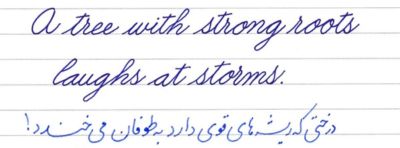 A tree with strong roots
laughs at storms.
درختی که ریشه های قوی دارد به طوفان می خندد!